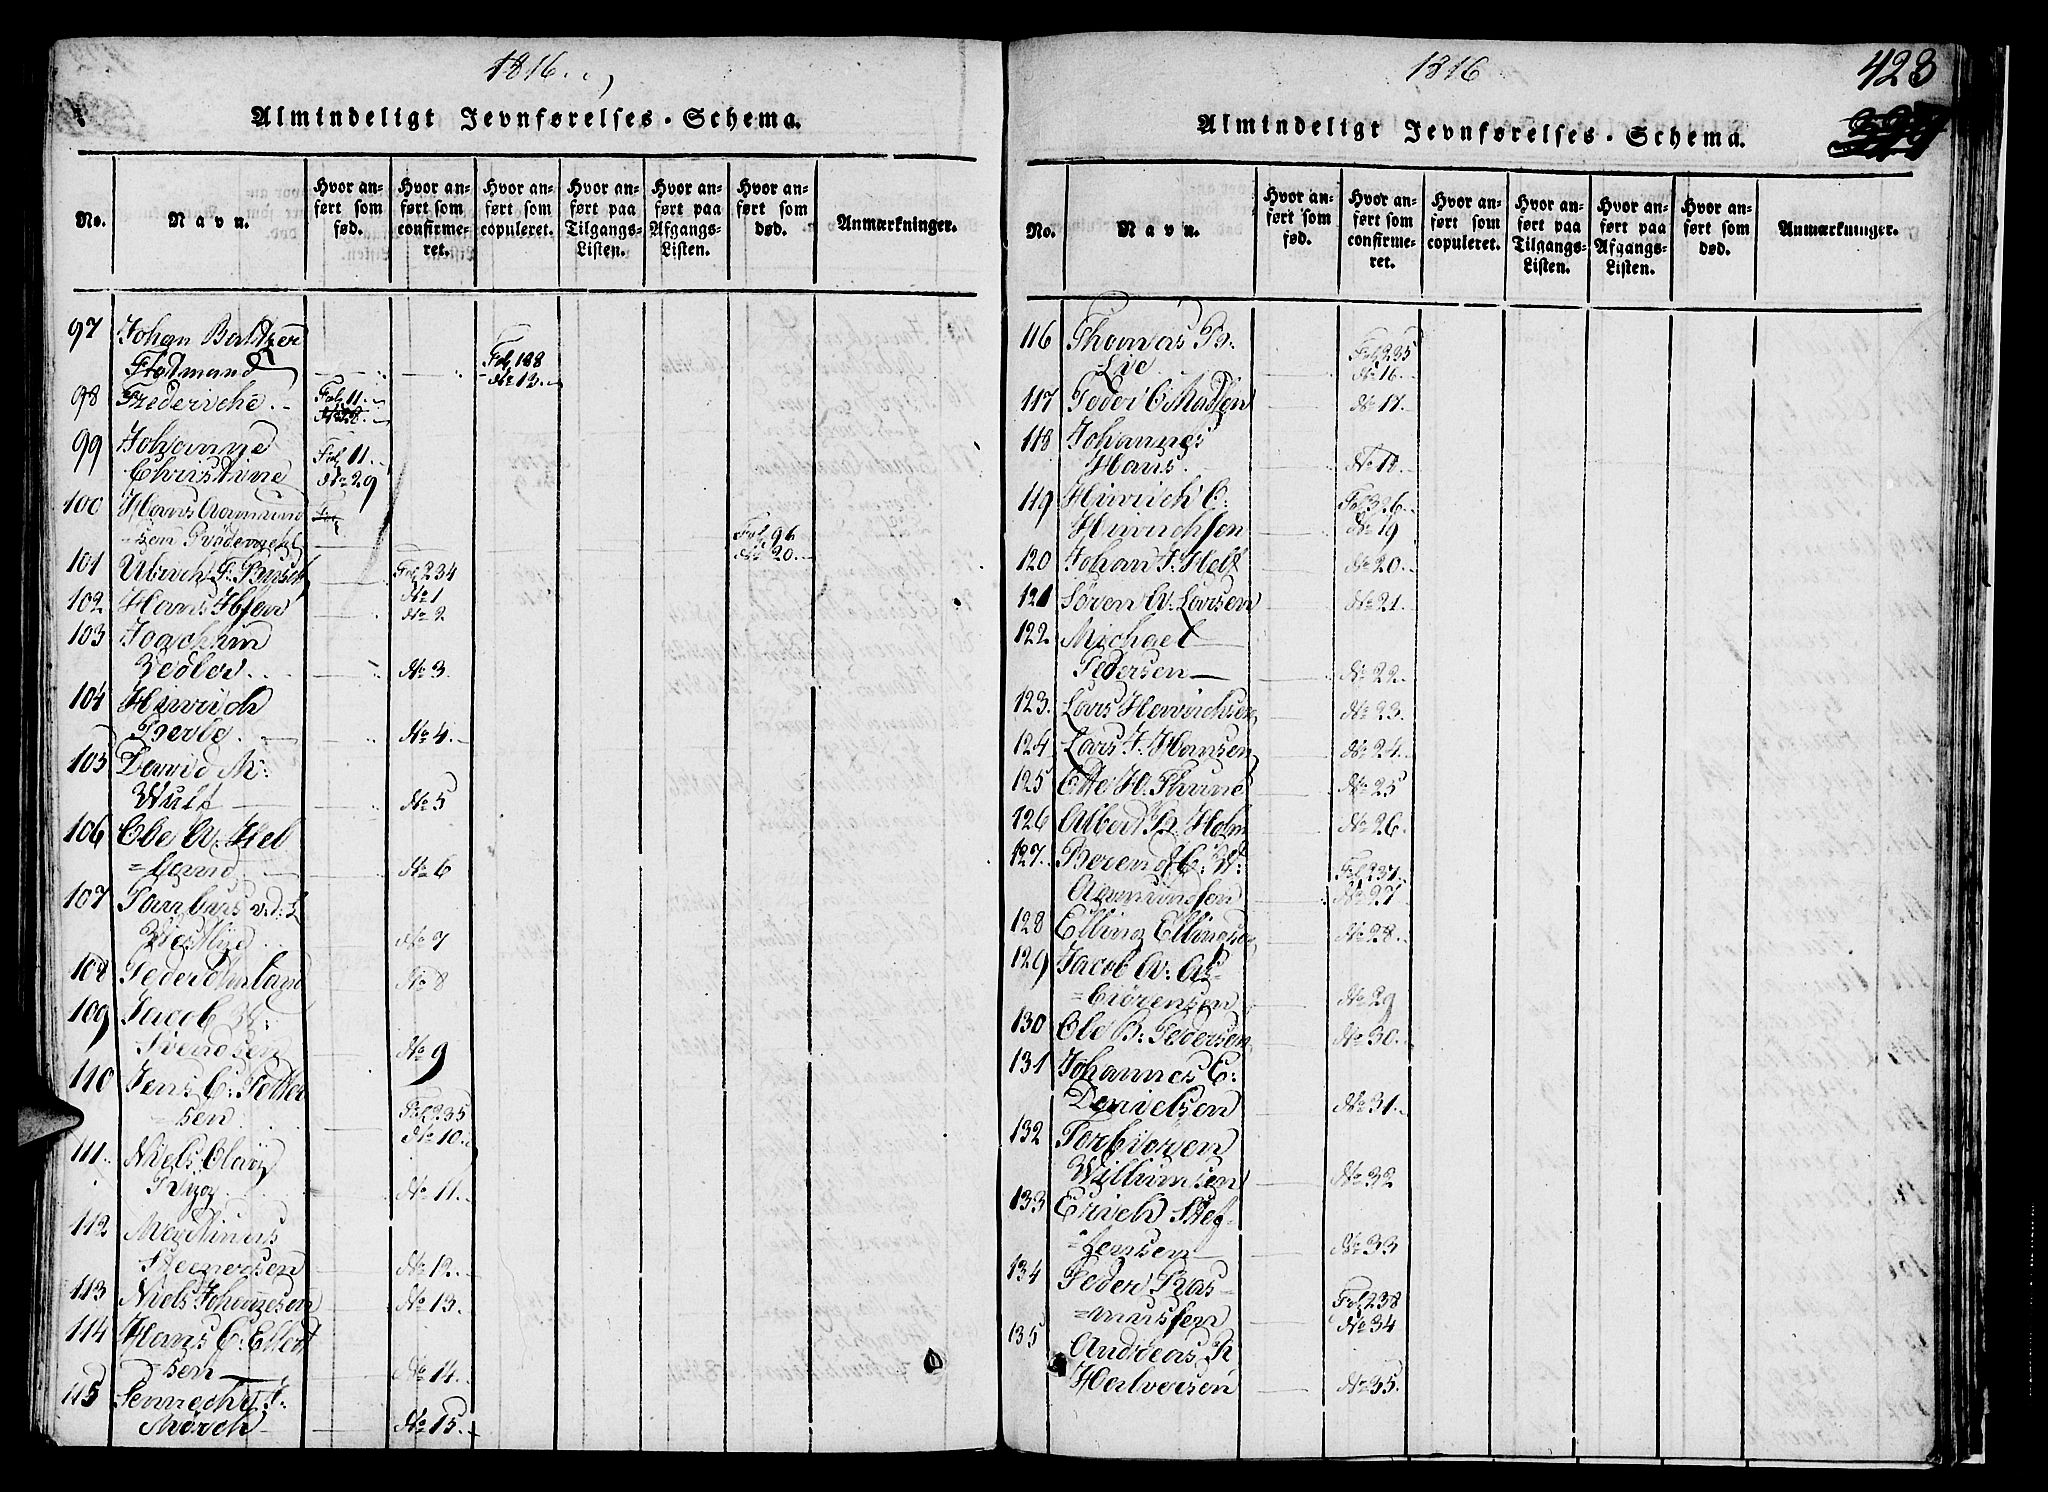 1816.
Almindeligt Jevnførelses-Schema.
No.
Navn.
Hvor an-
ført som
fød.
Hvor an-
ført som
confirme-
ret.
Hvor an-
ført som
copuleret.
Hvor an-
ført paa
Tilgangs-
Listen.
Hvor an-
ført paa
Afgangs-
Listen.
Hvor an-
ført som
død.
Anmærkninger.
97 Johan Baltzer
Flodmand Fol 188 No 13.
98 Frederiche Fol 11. No 28.
99 Johanne
Christine Fol 11. No 29
100 Hans Aamund
Fol 96 No 20.
101 Ulrich F. Busch Fol 234 No 1
102 Hans Ibsen No 2
103 Joachim
No 3
104 Hinrich
No 4.
105 David M:
Wulf No 5
106 Ole A: Hel
=land No 6
107
No 7
108 Peder Omland No 8
109 Jacob
Svendsen No 9
110 Jens C: Petter
=sen Fol 235 No 10.
111 Niels Olai
No 11.
112
Steenersen No 12.
113 Niels Johannesen No 13.
114 Hans C: Ellert
=sen No 14.
115
Mörch No 15.
1816
423
Almindeligt Jevnførelses-Schema.
No.
Navn.
Hvor an-
ført som
fød.
Hvor an-
ført som
confirme-
ret.
Hvor an-
ført som
copuleret.
Hvor an-
ført paa
Tilgangs-
Listen.
Hvor an-
ført paa
Afgangs-
Listen.
Hvor an-
ført som
død.
Anmærkninger.
116 Thomas
Lie Fol 235 No 16.
117 Peder C Madsen No 17.
118 Johannes
Hans No 18.
119 Hinrich C:
Heinrichsen Fol 336. No 19
120 Johan J. Holt No 20.
121 Sören A: Larsen No 21.
122. Michael
Pedersen No 22.
123. Lars Henrichsen No 23.
124 Lars J. Hansen No 24.
125 H. Thune No 25
126 Albert B. Holm No 26.
127. Berend C: W:
Aamundsen Fol 237. No 27
128 Elling Ellingsen No 28.
129 Jacob A: As-
=biörensen No 29
130 Ole B: Pedersen No 30.
131 Johannes E:
Danielsen No 31.
132 Torbiören
Willumsen No 32
133 Erich Stef-
=fensen No 33
134 Peder Ras-
=mussen Fol 238 No 34
135 Andreas R
Halvorsen No 35.